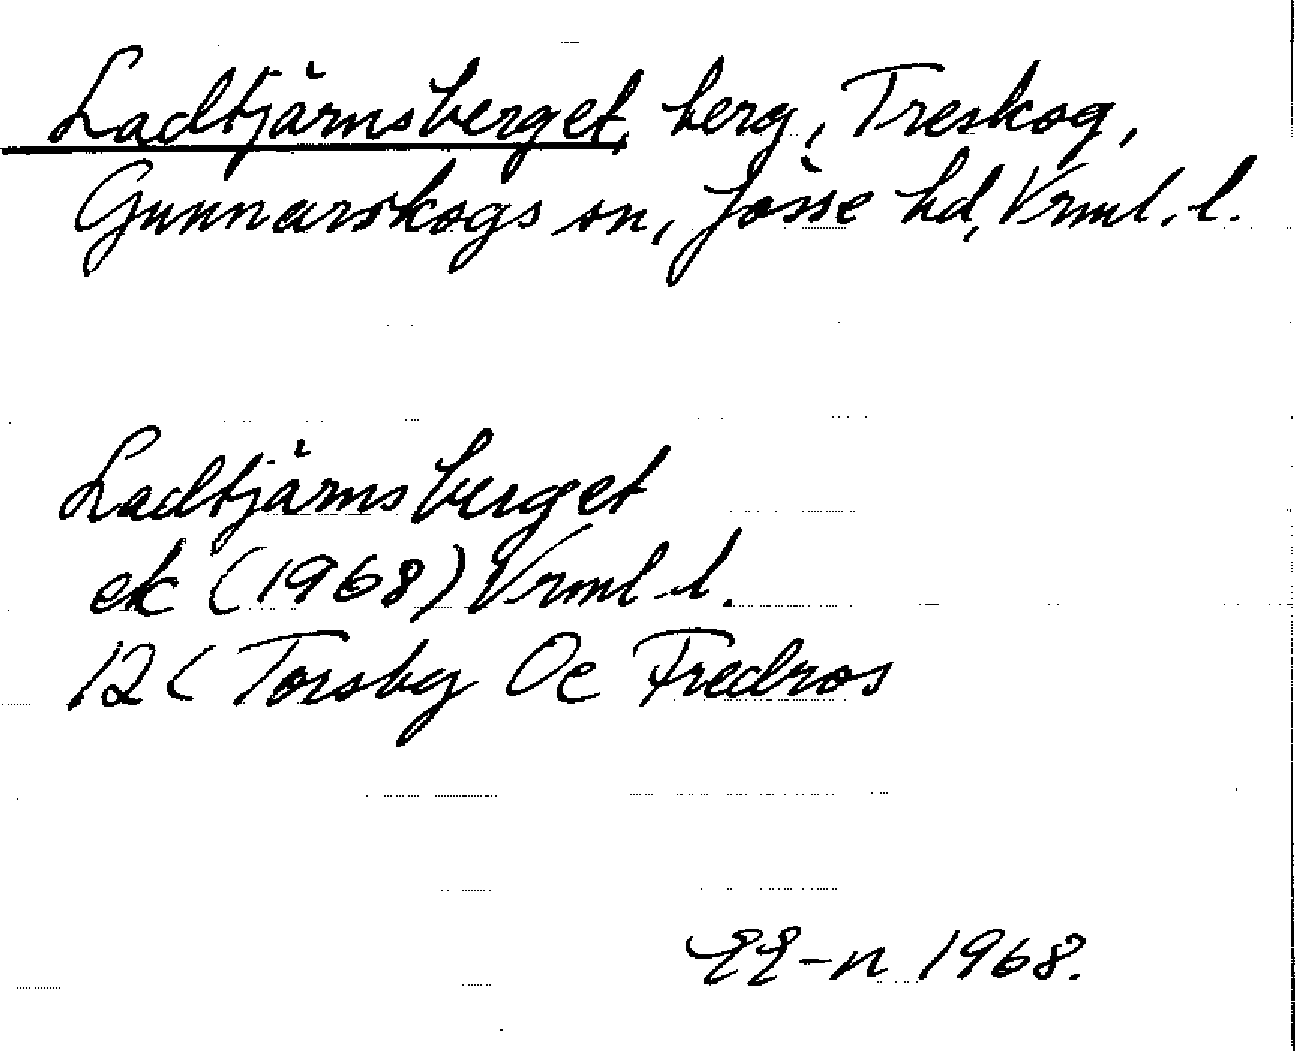 Ladtjärnsberget, berg, Treskog,
Gunnarskogs sn, Jösse hd, Vrml. l.
Ladtjärnsberget
ek (1968) Vrml l.
12C Torsby Oc Fredros
EE-n 1968.